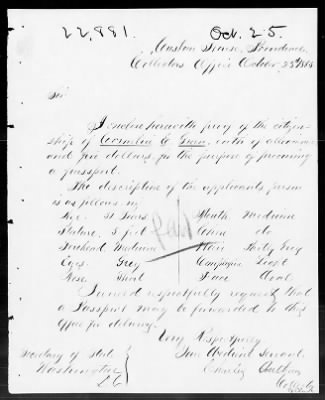 22,881. Oct. 25.
Custom House, Providence
Collectors Office October 25th
Sir
I enclose herewith proof of the citizen-
ship of Cornelia C. oath of allegiance
and five dollars, for the purpose of procuring
a passport.
The description of the applicants person
is as follows viz
Age Years Mouth Medium
Stature, 5 feet Chin do
Forehead Medium Hair Partly Grey
Eyes Grey Complexion Light
Nose Short Face Oval
I would respectfully request that
a Passport may be forwarded to this
office for delivery.
Very Respectfully
Your Obedient Servant.
Secretary of State
Washington
DC